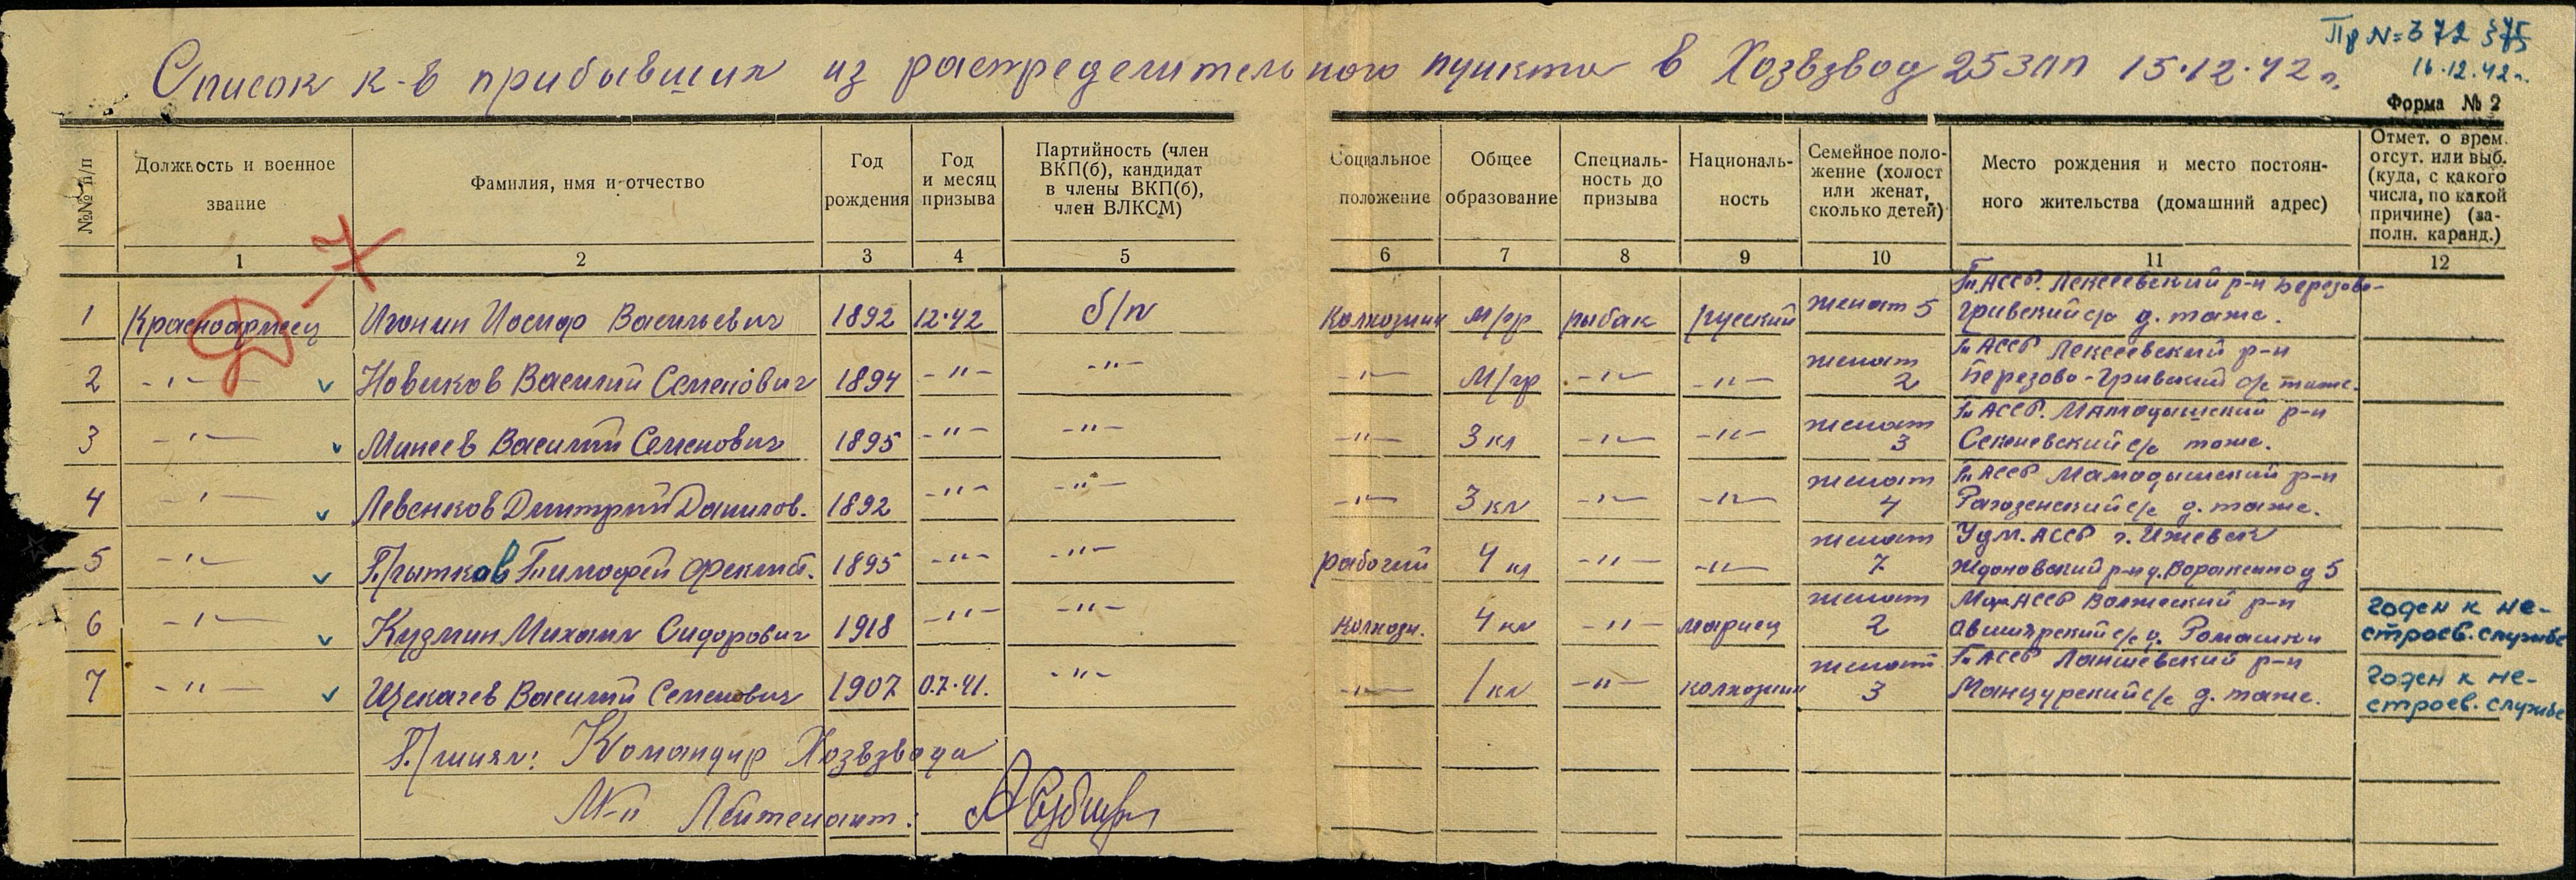 Пр № 372 375
16.12.42 г.
Список к-в прибывших из распределительного пункта в Хозвзвод 25 ЗПП 15.12.42 г.
Форма № 2
№№ п/п
Должность и военное звание
Фамилия, имя и отчество
Год рождения
Год и месяц призыва
Партийность (член ВКП(б), кандидат в члены ВКП(б), член ВЛКСМ)
Социальное положение
Общее образование
Специальность до призыва
Национальность
Семейное положение (холост или женат, сколько детей)
Место рождения и место постоянного жительства (домашний адрес)
Отмет. о врем. отсут. или выб. (куда, с какого числа, по какой причине) (заполн. каранд.)
1 2 3 4 5 6 7 8 9 10 11 12
7
1 Красноармеец Игонин Иосиф Васильевич 1892 12.42 б/п Колхозник м/гр рыбак русский женат 5 Т.АССР. Алексеевский р-н Березово-Гривский с/с д. таже.
2 -"- Новиков Василий Семенович 1894 -"- -"- -"- м/гр -"- -"- женат 2 Т.АССР Алексеевский р-н Березово-Гривский с/с таже.
3 -"- Минеев Василий Семенович 1895 -"- -"- -"- 3 кл -"- -"- женат 3 Т.АССР. Мамадышский р-н с/с тоже.
4 -"- Левенков Дмитрий Данилов. 1892 -"- -"- -"- 3 кл -"- -"- женат 4 Т.АССР Мамадышский р-н с/с д. таже.
5 -"- Прытков Тимофей Феклист. 1895 -"- -"- рабочий 4 кл -"- -"- женат 7 Удм. АССР г. Ижевск Ждановский р-н д. 5
6 -"- Кузмин Михаил Сидорович 1918 -"- -"- колхозн. 4 кл -"- мариец женат 2 Мар АССР Волжский р-н с/с д. Ромашки годен к нестроев. службе
7 -"- Щекачев Василий Семенович 1907 0.7.41. -"- -"- 1 кл -"- колхозник женат 3 Т.АССР Лаишевский р-н с/с д. таже. годен к нестроев. службе
Принял: Командир Хозвзвода
Мл-й Лейтенант: